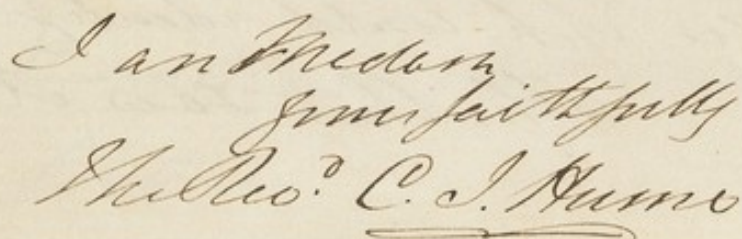 I am Madam
yours faithfully
The Revd. C. J. Hume